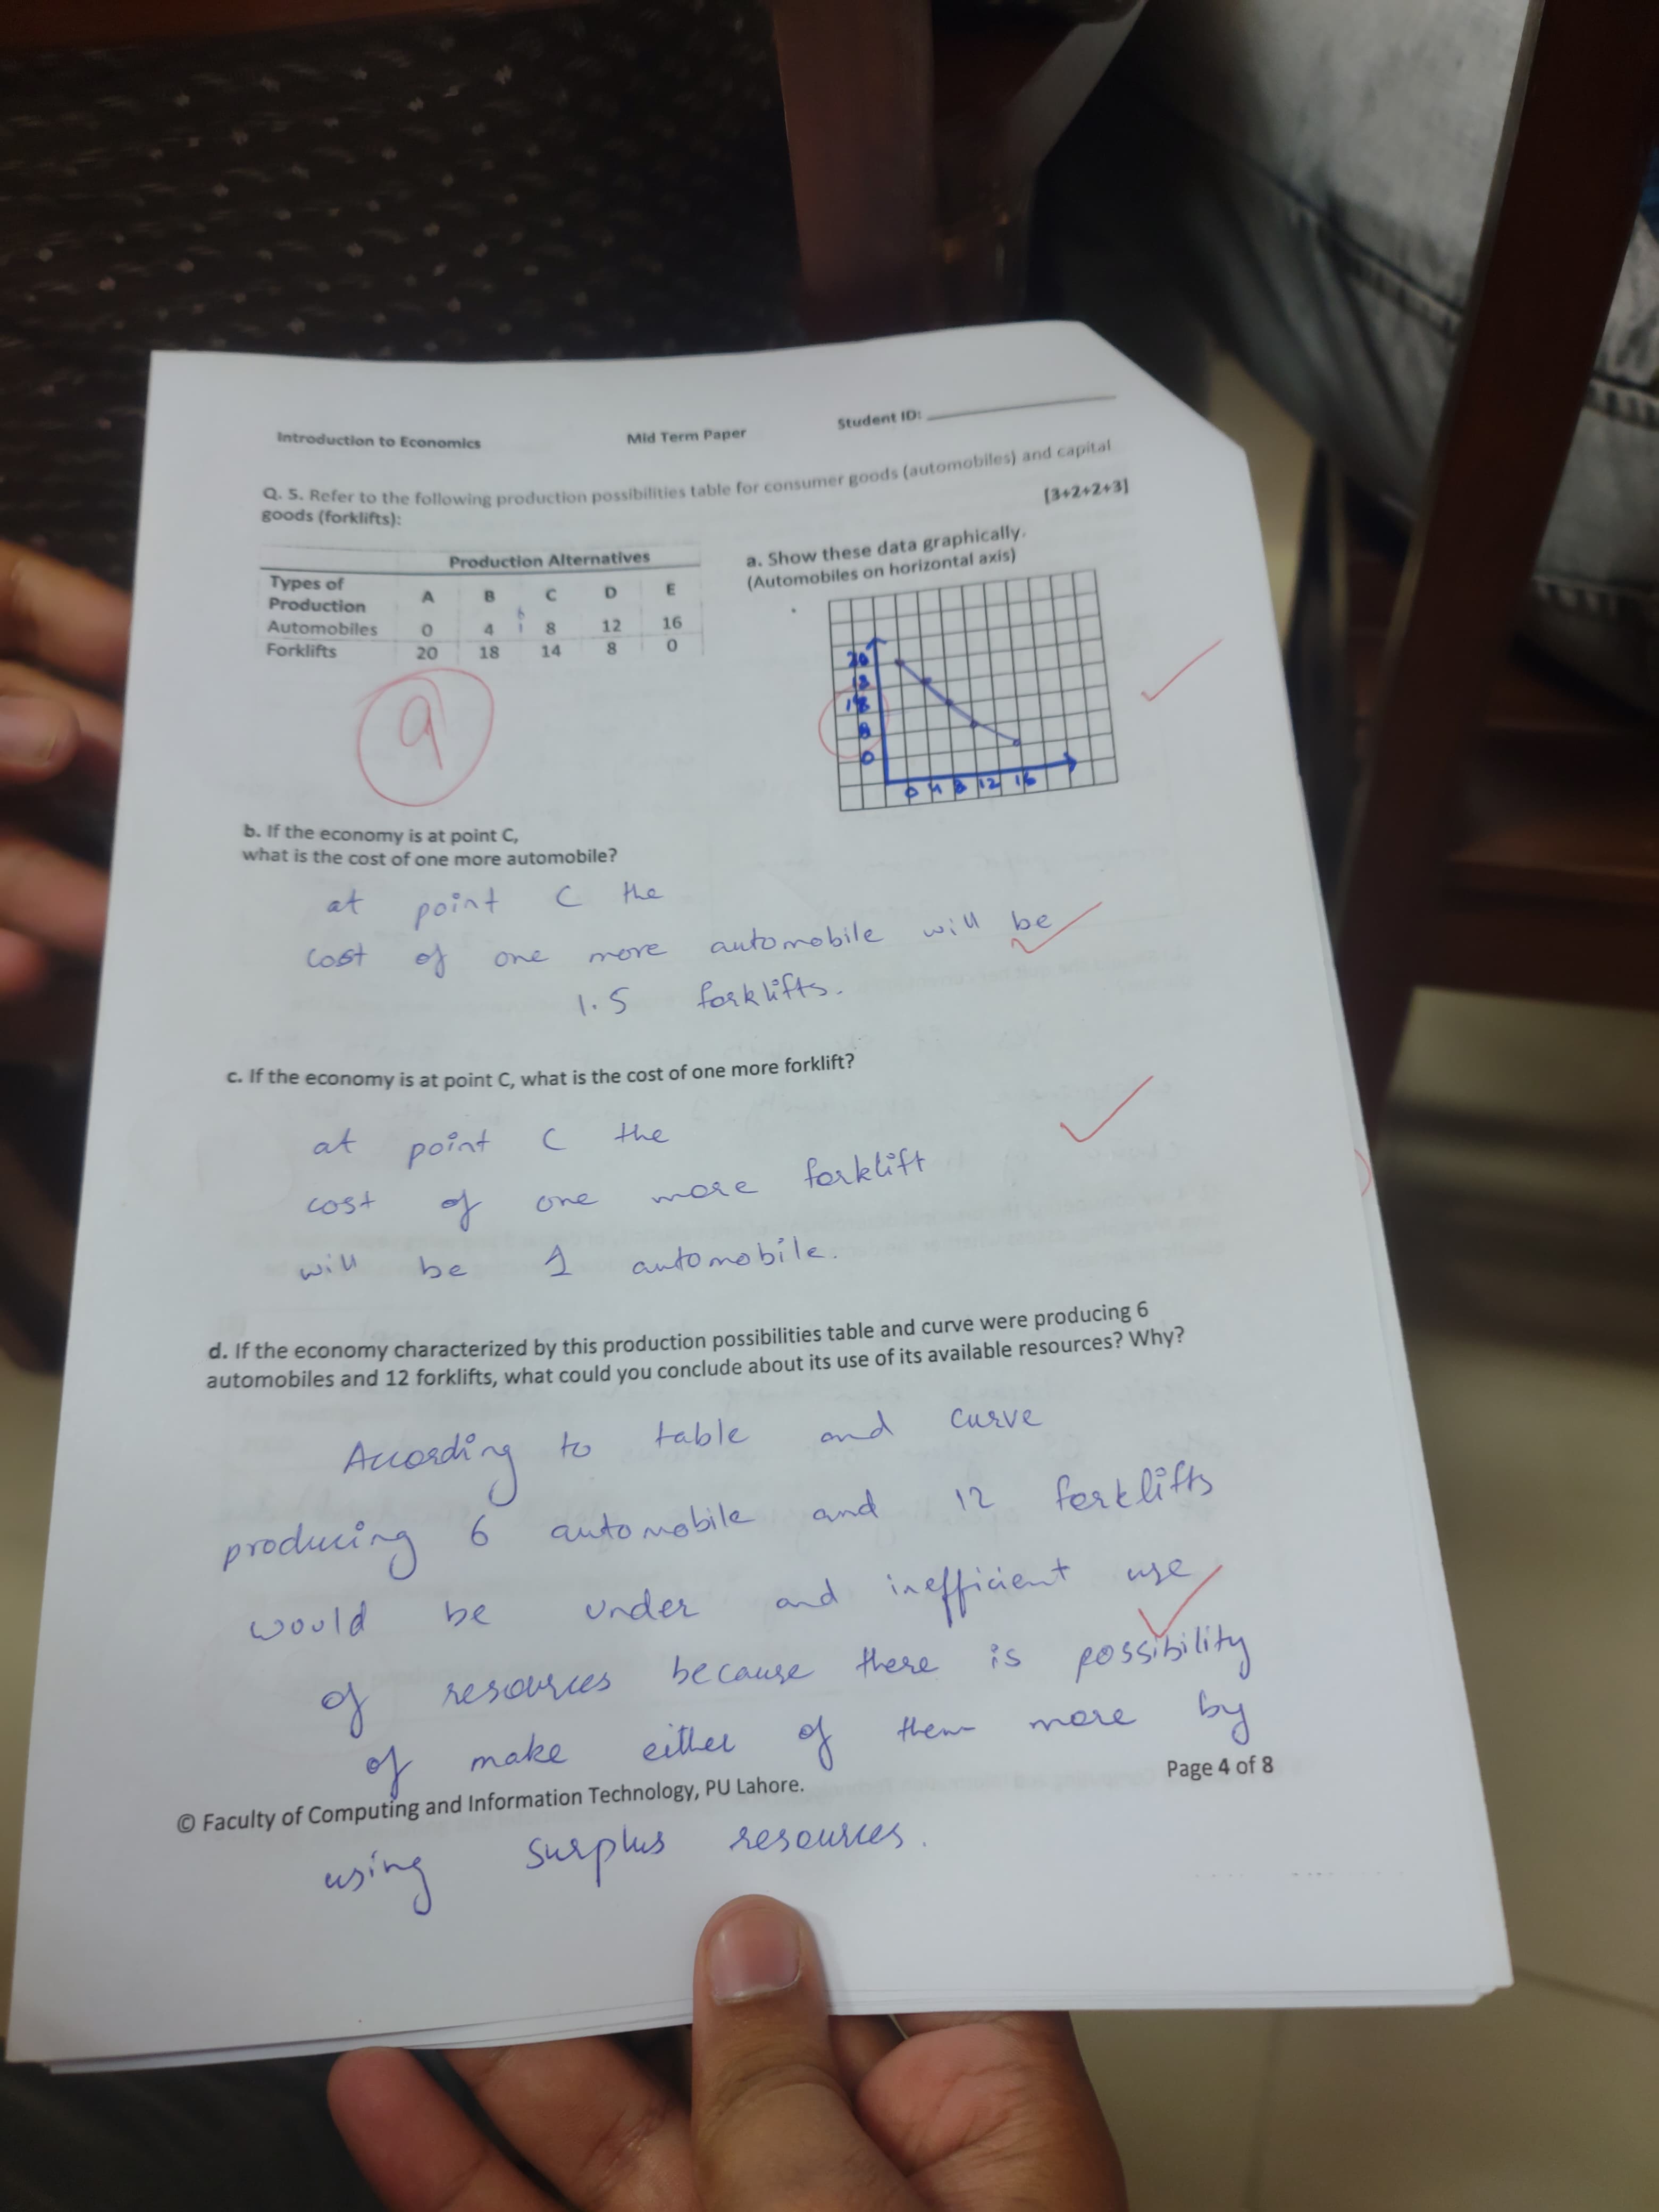 Introduction to Economics Mid Term Paper Student ID:
Q. 5. Refer to the following production possibilities table for consumer goods (automobiles) and capital
goods (forklifts):
[3+2+2+3]
Production Alternatives
Types of
Production A B C D E
Automobiles 0 4 8 12 16
Forklifts 20 18 14 8 0
9
a. Show these data graphically.
(Automobiles on horizontal axis)
20
18
8
0
0 4 8 12 16
b. If the economy is at point C,
what is the cost of one more automobile?
at point C the
cost of one more automobile will be
1.5 forklifts.
c. If the economy is at point C, what is the cost of one more forklift?
at point C the
cost of one more forklift
will be 1 automobile.
d. If the economy characterized by this production possibilities table and curve were producing 6
automobiles and 12 forklifts, what could you conclude about its use of its available resources? Why?
According to table and curve
producing 6 automobile and 12 forklifts
would be under and inefficient use
of resources because there is possibility
of make either of them more by
© Faculty of Computing and Information Technology, PU Lahore. Page 4 of 8
using surplus resources.